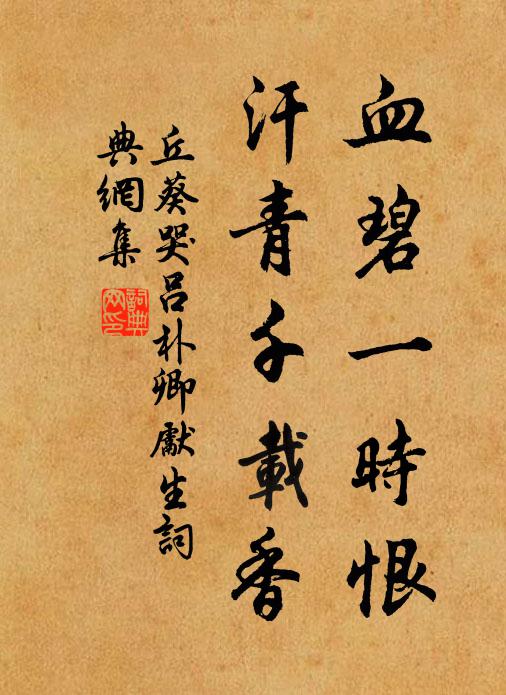 血碧一時恨
汗青千載香
丘葵哭吕朴卿獻生詞
典網集
詞典
网印